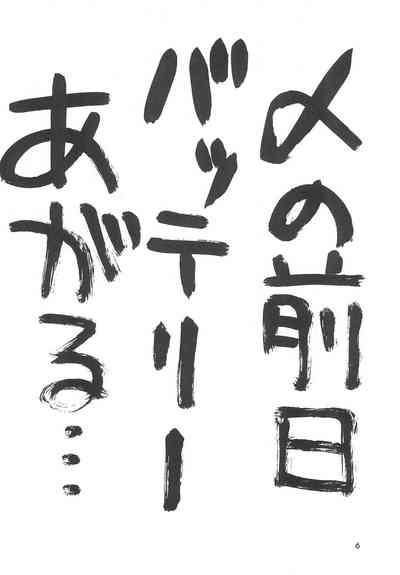 〆の前日
バッテリー
あがる…
6